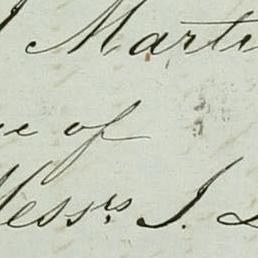 J Marti
ce of
Messrs J. L